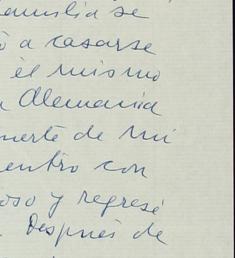 familia se
ó a casarse
él mismo
a Alemania
muerte de mi
entro con
oso y regresé
. Después de